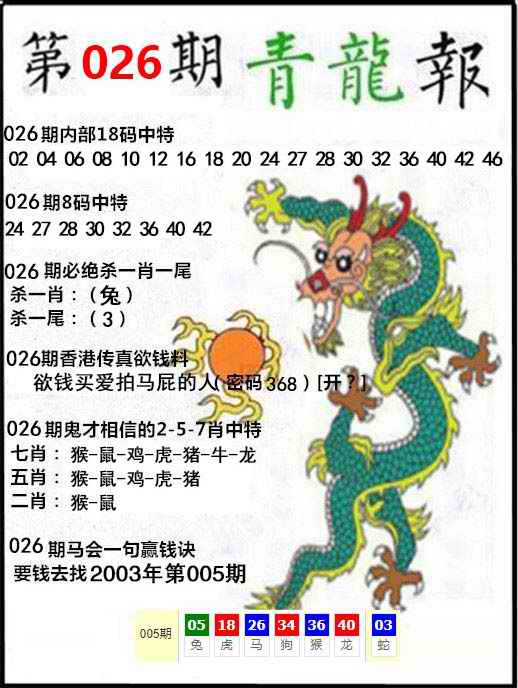 第026期青龍報
026期内部18码中特
02 04 06 08 10 12 16 18 20 24 27 28 30 32 36 40 42 46
026期8码中特
24 27 28 30 32 36 40 42
026期必绝杀一肖一尾
杀一肖：(兔)
杀一尾：(3)
026期香港传真欲钱料
欲钱买爱拍马屁的人(密码368)[开?]
026期鬼才相信的2-5-7肖中特
七肖：猴-鼠-鸡-虎-猪-牛-龙
五肖：猴-鼠-鸡-虎-猪
二肖：猴-鼠
026期马会一句赢钱诀
要钱去找2003年第005期
005期 05 18 26 34 36 40 03
兔 虎 马 狗 猴 龙 蛇